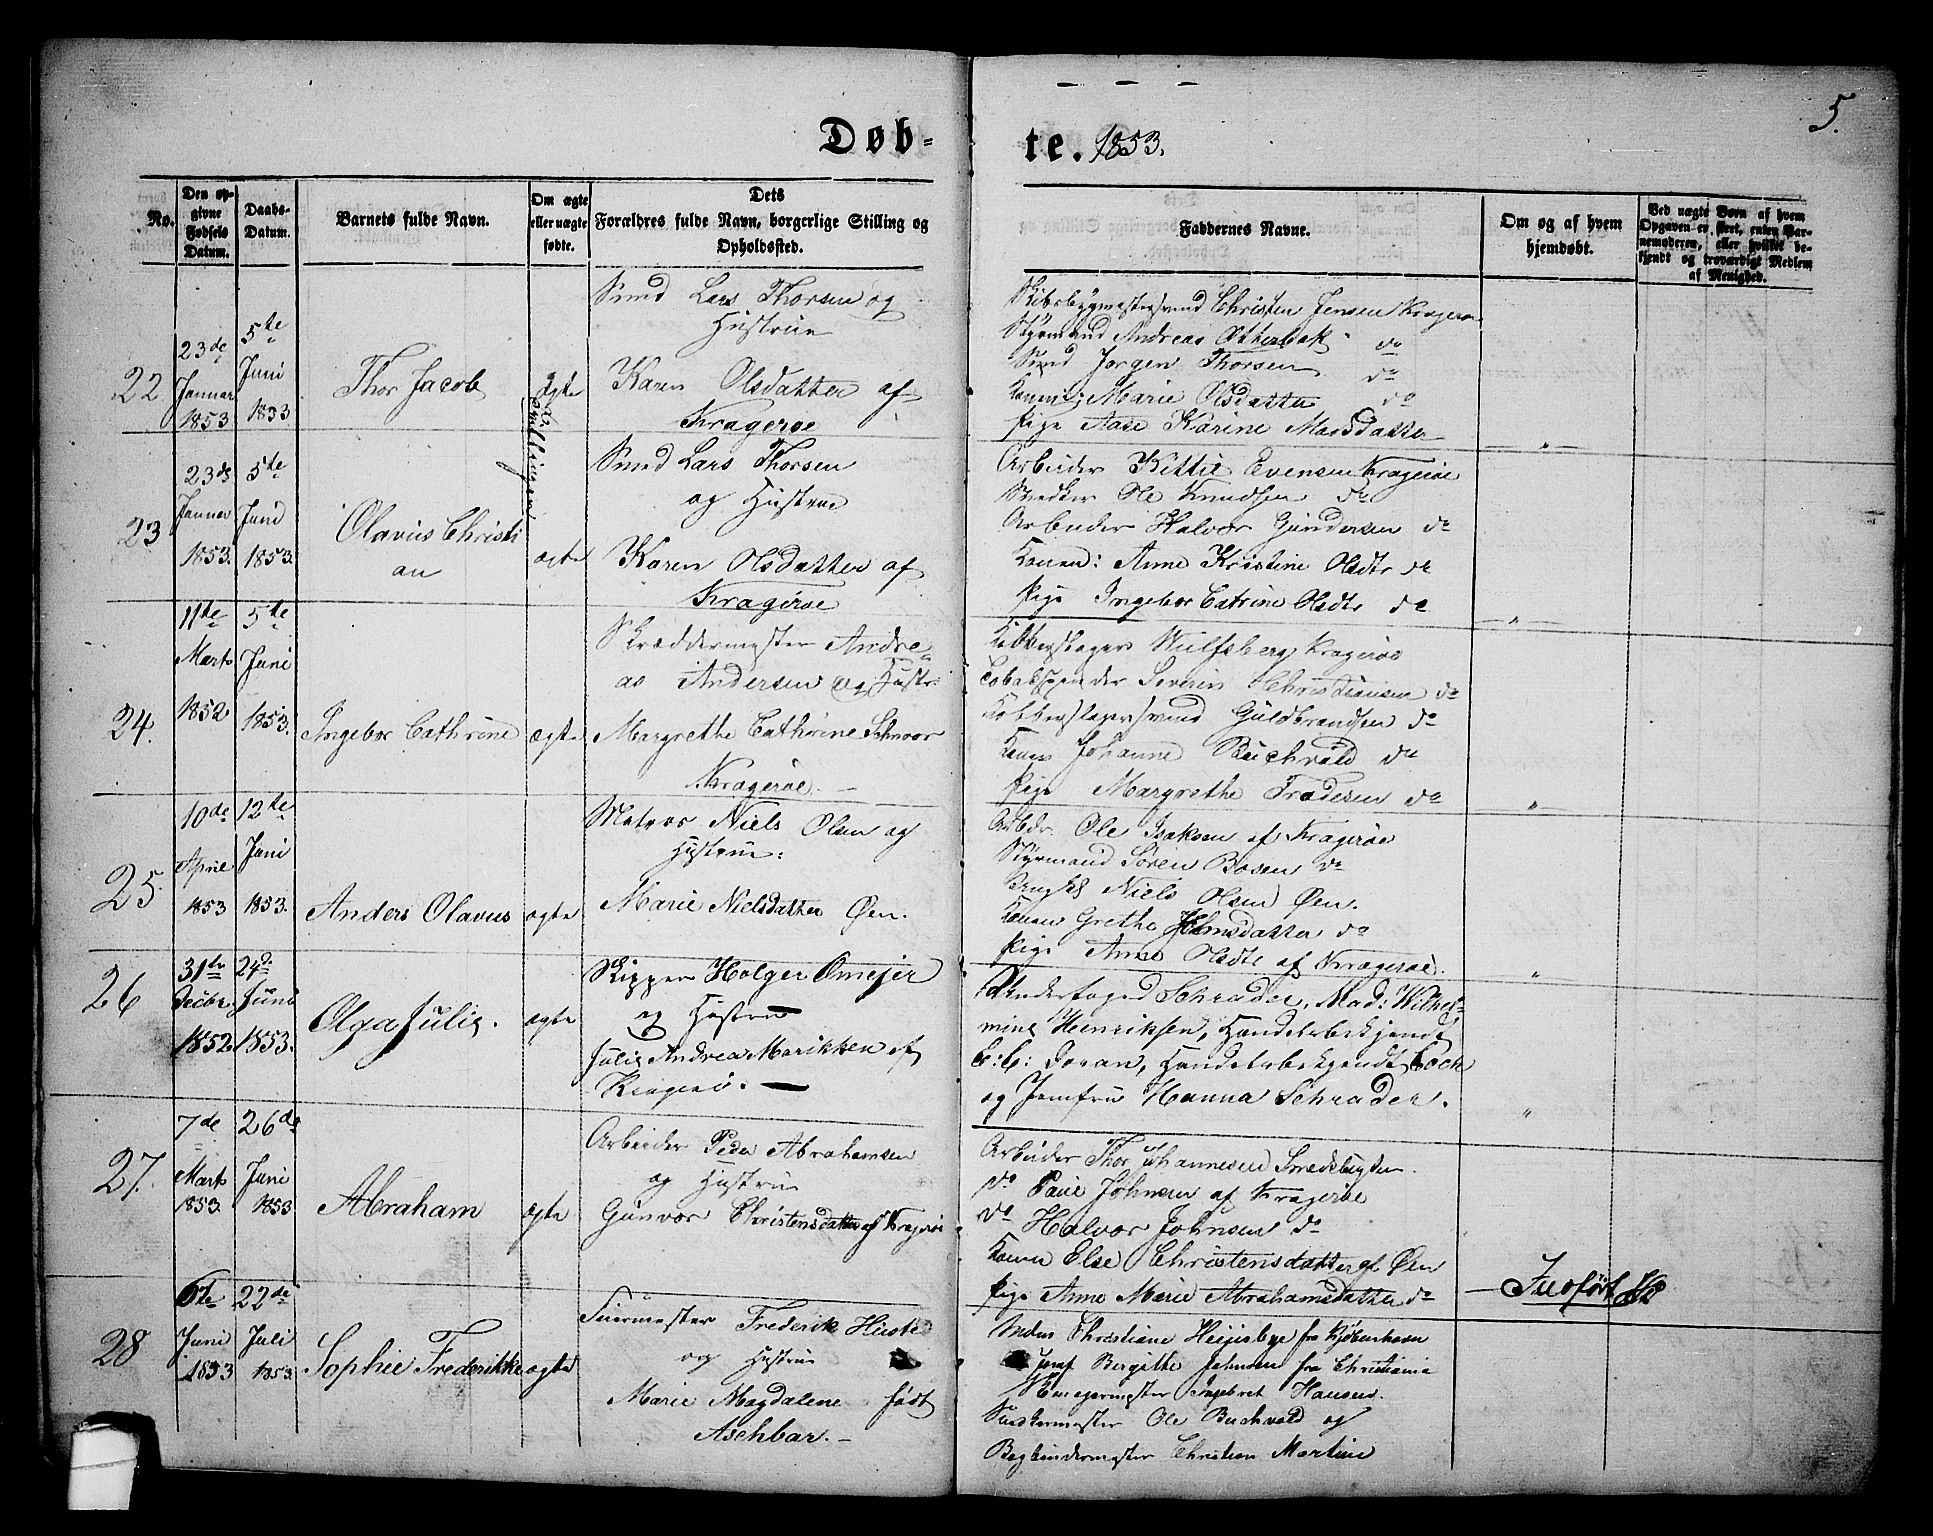 5.
Døb-
te. 1853.
No.
Den op-
givne
Fødsels
Datum.
Daabs-
Datum.
Barnets fulde Navn.
Om ægte
eller uægte
fødte.
Dets
Forældres fulde Navn, borgerlige Stilling og
Opholdsted.
Faddernes Navne.
Om og af hvem
hjemdøbt.
Ved uægte Børn af hvem
Opgaven er skeet, enten Bar-
nemoderen, eller hvilket be-
kjendt og troværdigt Medlem
af Menighed.
22
23de
Januar
1853
5te
Juni
1853
Thor Jacob
ægte
Tvillinger
Smed Lars Thorsen og
Hustrue
Karen Olsdatter af
Kragerøe
Christen Jensen Kragerø
Styrmand Andreas Otterbek do
Smed Jørgen Thorsen do
Konen: Marie Olsdatter do
Pige Aase Karine Madsdatter
"
23
23de
Januar
1853.
5te
Juni
1853.
Olavus Christi
an
ægte
Smed Lars Thorsen
og Hustrue
Karen Olsdatter af
Kragerøe
Arbeider Kittil Evensen Kragerøe
Ole Knudsen do
Arbeider Halvor Gundersen do
Konen: Anne Kristine Olsdtr do
Pige Ingebor Catrine Olsdtr do
"
24.
11te
Marts
1852
5te
Juni
1853.
Ingebor Cathrine
ægte
Skræddermester Andre-
as Andersen og Hustr:
Margrethe Cathrine Schnoor
Kragerøe. -
Kobberslager Wulfsberg Kragerøe
Tobakspinder Severin Christiansen do
Kobberslagersvend Guldbrandsen do
Konen Johanne Buchvold do
Pige Margrethe Fredesen do
"
25.
10de
April
1853
12te
Juni
1853.
Anders Olavus
ægte
Matros Niels Olsen og
Hustrue:
Marie Nielsdatter Øen.
Arbdr. Ole Isaksen af Kragerøe
Styrmand Søren Bosen do
Niels Olsen Øen.
Konen Grethe Jensdatter do
Pige Anne Olsdtr af Kragerøe.
"
26
31te
Decbr.
1852
24de
Juni
1853.
Olga Julie.
ægte
Skipper Holger Omejer
og Hustru
Julie Andrea Marikken af
Kragerø. -
Underfoged Schrader, Mad: Wilhel-
mine Henriksen, Handelsbetjendt
C: C: Dovan, Handelsbetjendt Coch
og Jomfru Hanna Schrader.
"
27.
7de
Marts
1853.
26de
Juni
1853
Abraham
ægte
Arbeider Peder Abrahamsen
og Hustrue
Gunvor Christensdatter af Kragerøe
Arbeider Thor Johannesen Smedsbugten.
do Povel Johnsen af Kragerøe
do Halvor Johnsen do
Konen Else Christensdatter af Øen
Pige Anne Marie Abrahamsdatter do
28
6te
Juni
1853
22de
Juli
1853.
Sophie Frederikke
ægte
Feiermester Frederik Huste
og Hustrue
Marie Magdalene født
Aschbar. -
Christiane Heijisbye fra Kjøbenhavn
Jomf Birgitte Johnsen fra Christiania
Ingebret Hansen.
Snedkermester Ole Buchvold og
Bogbindermester Christian Martini
Indført